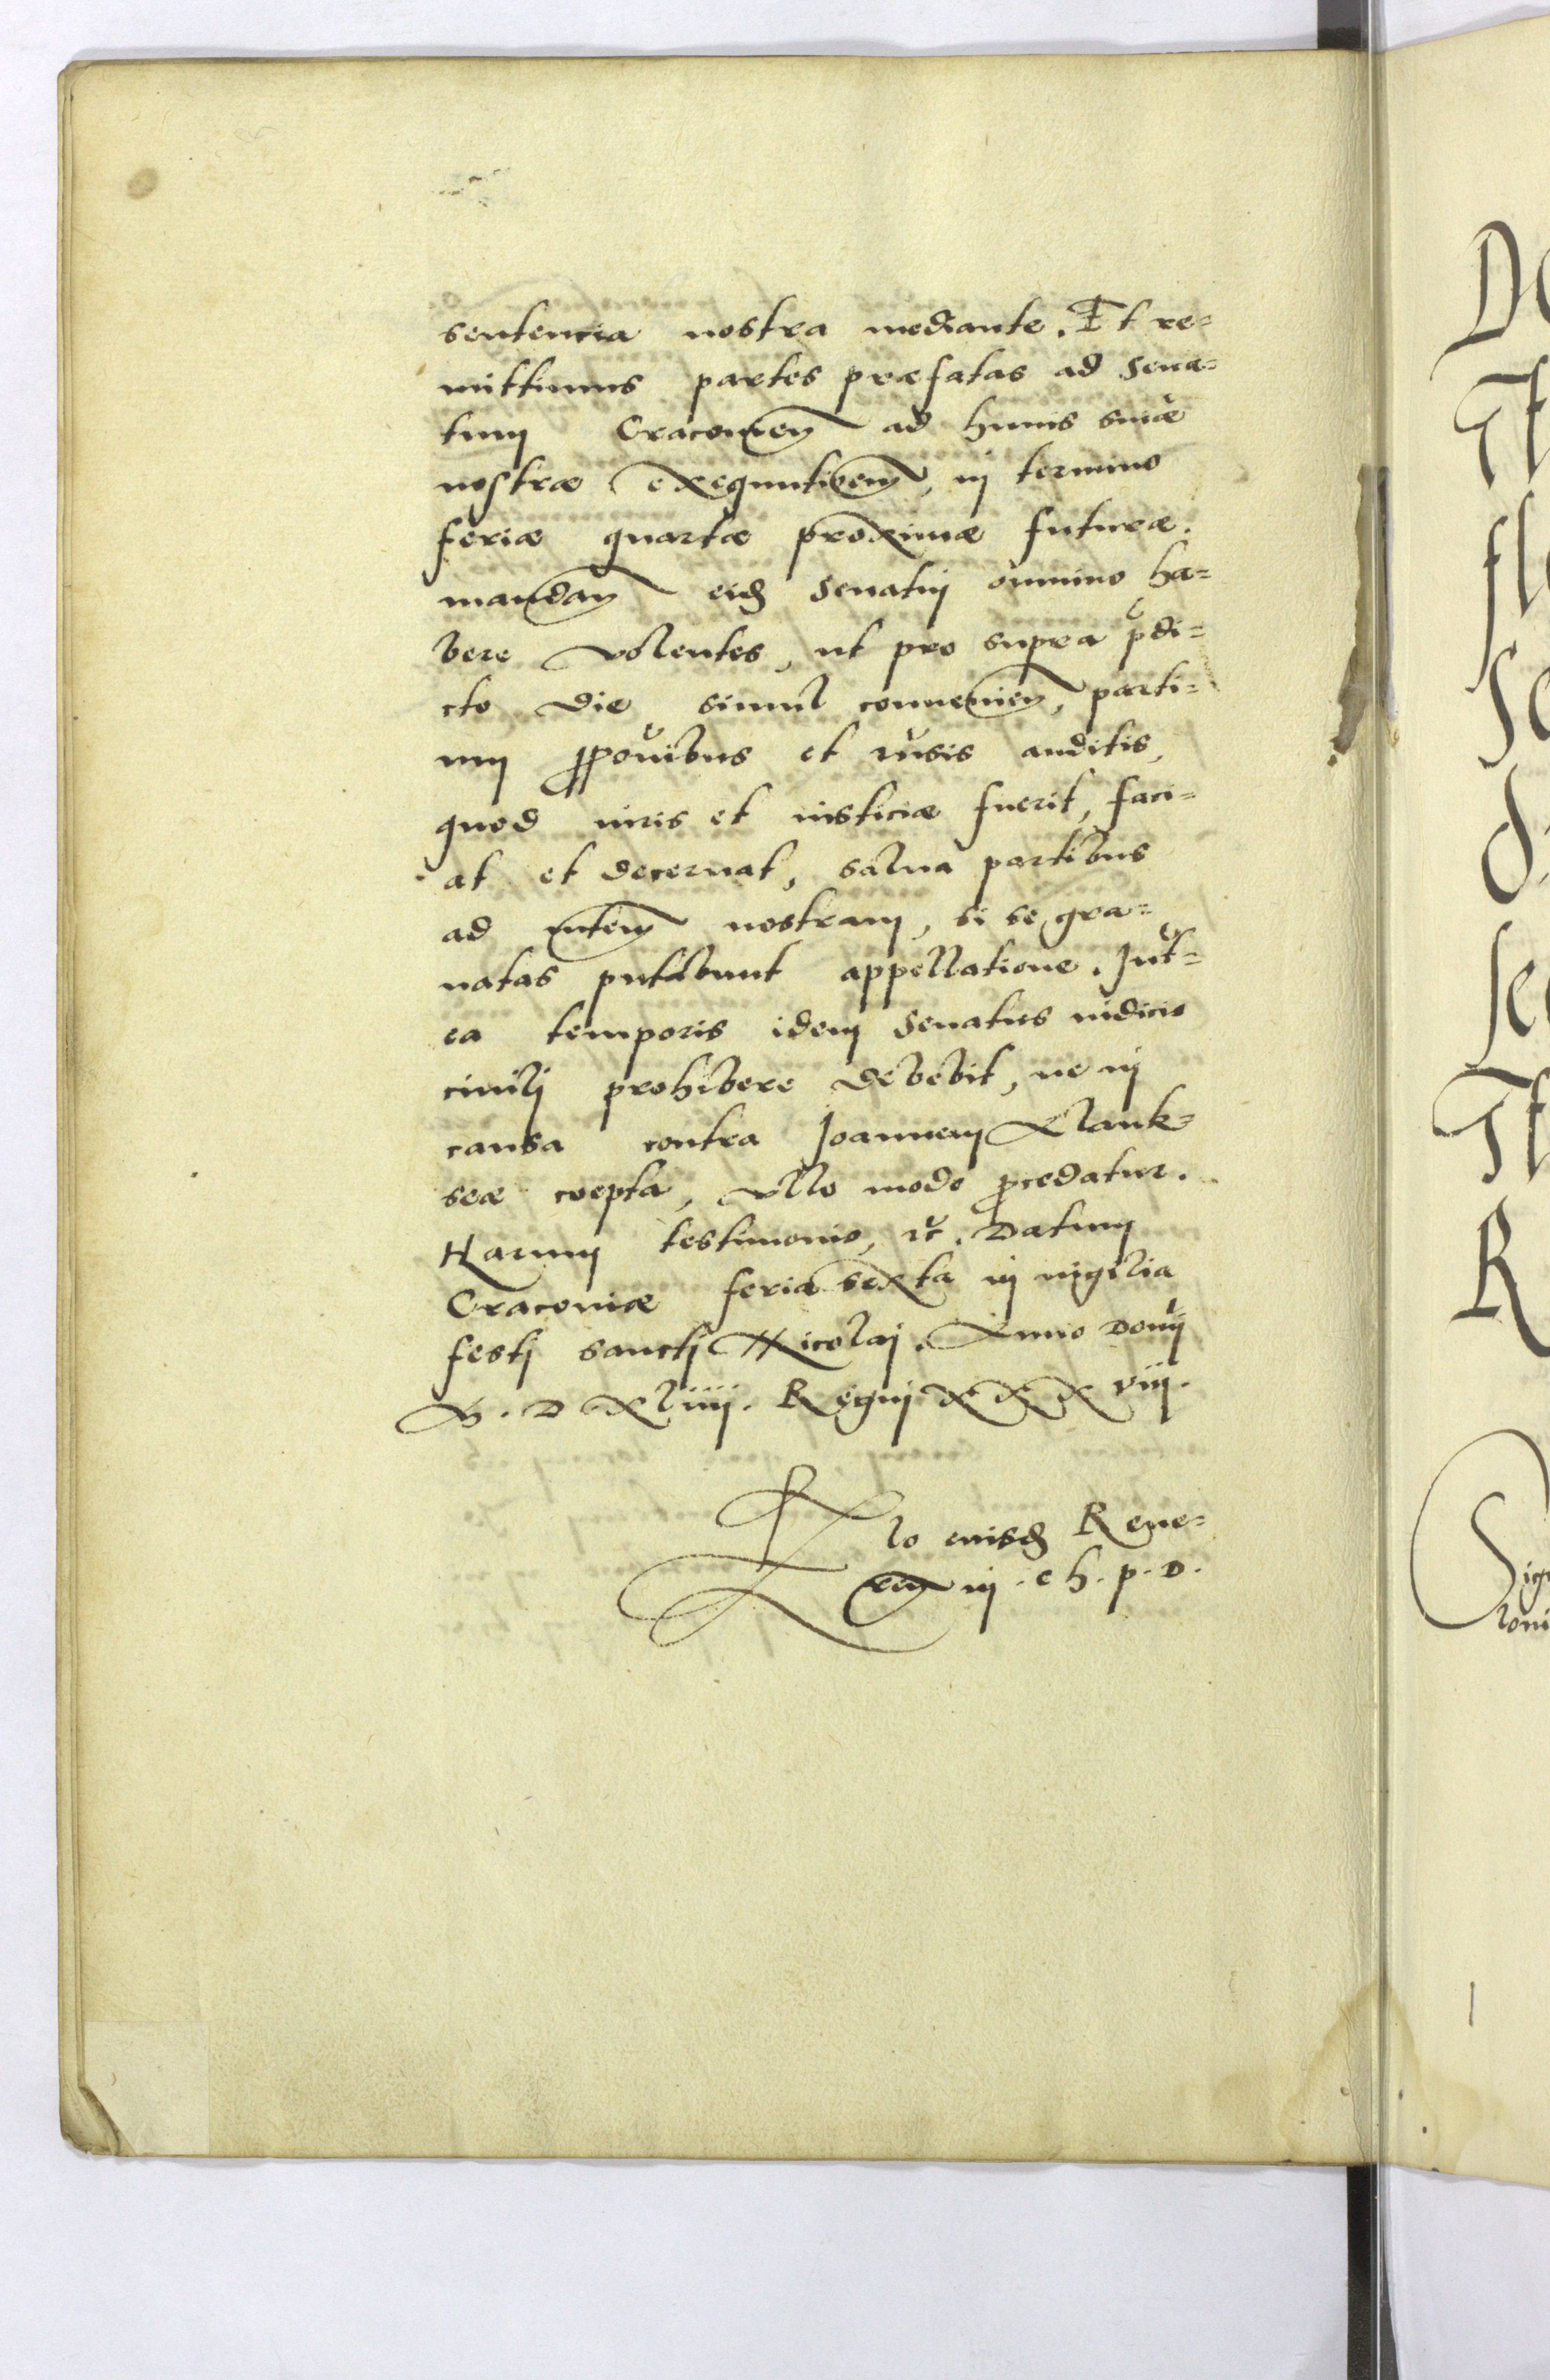 sentencia nostra mediante. Et re=
mittimus partes præfatas ad Sena=
tum Cracovien ad huius sniæ
nostræ exequutionem, in termino
feriæ quartæ proximæ futuræ.
mandan eid Senatui omnino ha=
bere volentes, ut pro supra pdi=
cto die simul convenien, parti=
um ppõnibus et rñsis auditis,
quod iuris et iusticiæ fuerit, faci=
at et decernat, salva partibus
ad mtem nostram, si se gra=
vatas putabunt appellatione. Int=
ea temporis idem Senatus iudicio
civili prohibere debebit, ne in
causa contra Joannem
seæ coepta, ullo modo pcedatur.
Harum testimonio, rc. Datum
Cracoviæ feria sexta in vigilia
festi sancti Nicolai. Anno Domi
M. D xliiii. Regni xxxviii.
lo eiusd Reve=
ren in . c h . p . D .
D
Tt
fl
Se
d
se
Tt
R
Sig
loni